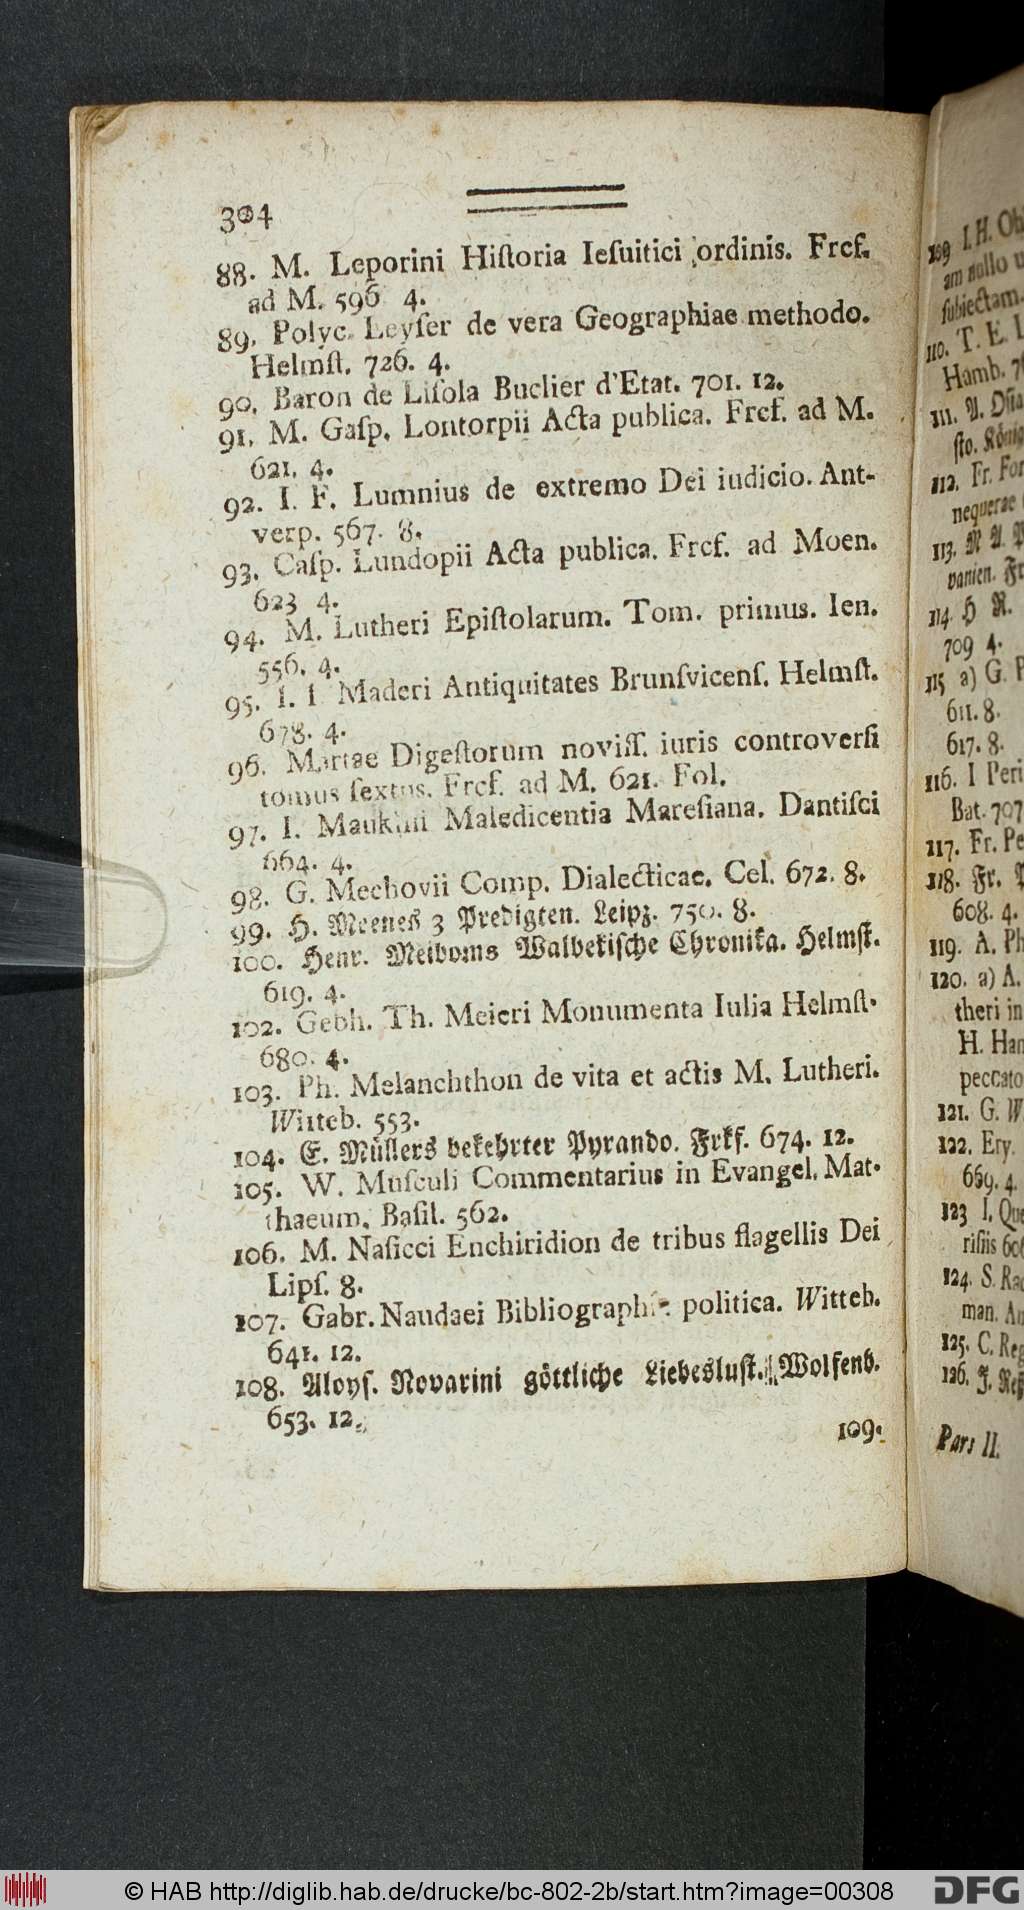 304
88. M. Leporini Hiſtoria Ieſuitici ordinis. Frcf.
ad M. 596 4.
89. Polyc. Leyſer de vera Geographiae methodo.
Helmſt. 726. 4.
90. Baron de Liſola Buclier d'Etat. 701. 12.
91. M. Gaſp. Lontorpii Acta publica. Frcf. ad M.
621. 4.
92. I. F. Lumnius de extremo Dei iudicio. Ant-
verp. 567. 8.
93. Caſp. Lundopii Acta publica. Frcf. ad Moen.
623 4.
94. M. Lutheri Epiſtolarum. Tom. primus. Ien.
556. 4.
95. I. I Maderi Antiquitates Brunſvicenſ. Helmſt.
678. 4.
96. Martae Digeſtorum noviſſ. iuris controverſi
tomus ſextus. Frcf. ad M. 621. Fol.
97. I. Maukiſii Maledicentia Mareſiana. Dantiſci
664. 4.
98. G. Mechovii Comp. Dialecticae. Cel. 672. 8.
99. H. Meenes 3 Predigten. Leipz. 750. 8.
100. Henr. Meiboms Walbekiſche Chronika. Helmſt.
619. 4.
102. Gebh. Th. Meieri Monumenta Iulia Helmſt.
680. 4.
103. Ph. Melanchthon de vita et actis M. Lutheri.
Witteb. 553.
104. E. Müllers bekehrter Pyrando. Frkf. 674. 12.
105. W. Muſculi Commentarius in Evangel. Mat-
thaeum. Baſil. 562.
106. M. Naſicci Enchiridion de tribus flagellis Dei
Lipſ. 8.
107. Gabr. Naudaei Bibliographie politica. Witteb.
641. 12.
108. Aloyſ. Novarini göttliche Liebesluſt. Wolfenb.
653. 12.
109.
109 I. H.
am nullo
ſubiectam.
110. T. E.
Hamb.
111. A.
ſto.
112. Fr.
nequerae
113.
vanien.
114. H R.
709 4.
115 a) G.
611. 8.
617. 8.
116. I
Bat. 707
117. Fr.
118. Fr.
608. 4.
119. A.
120. a) A.
theri in
H.
peccato
121. G.
122. Ery.
669. 4.
123 I.
riſiis
124. S.
man.
125. C.
126. J.
Pars II.
© HAB http://diglib.hab.de/drucke/bc-802-2b/start.htm?image=00308
DFG